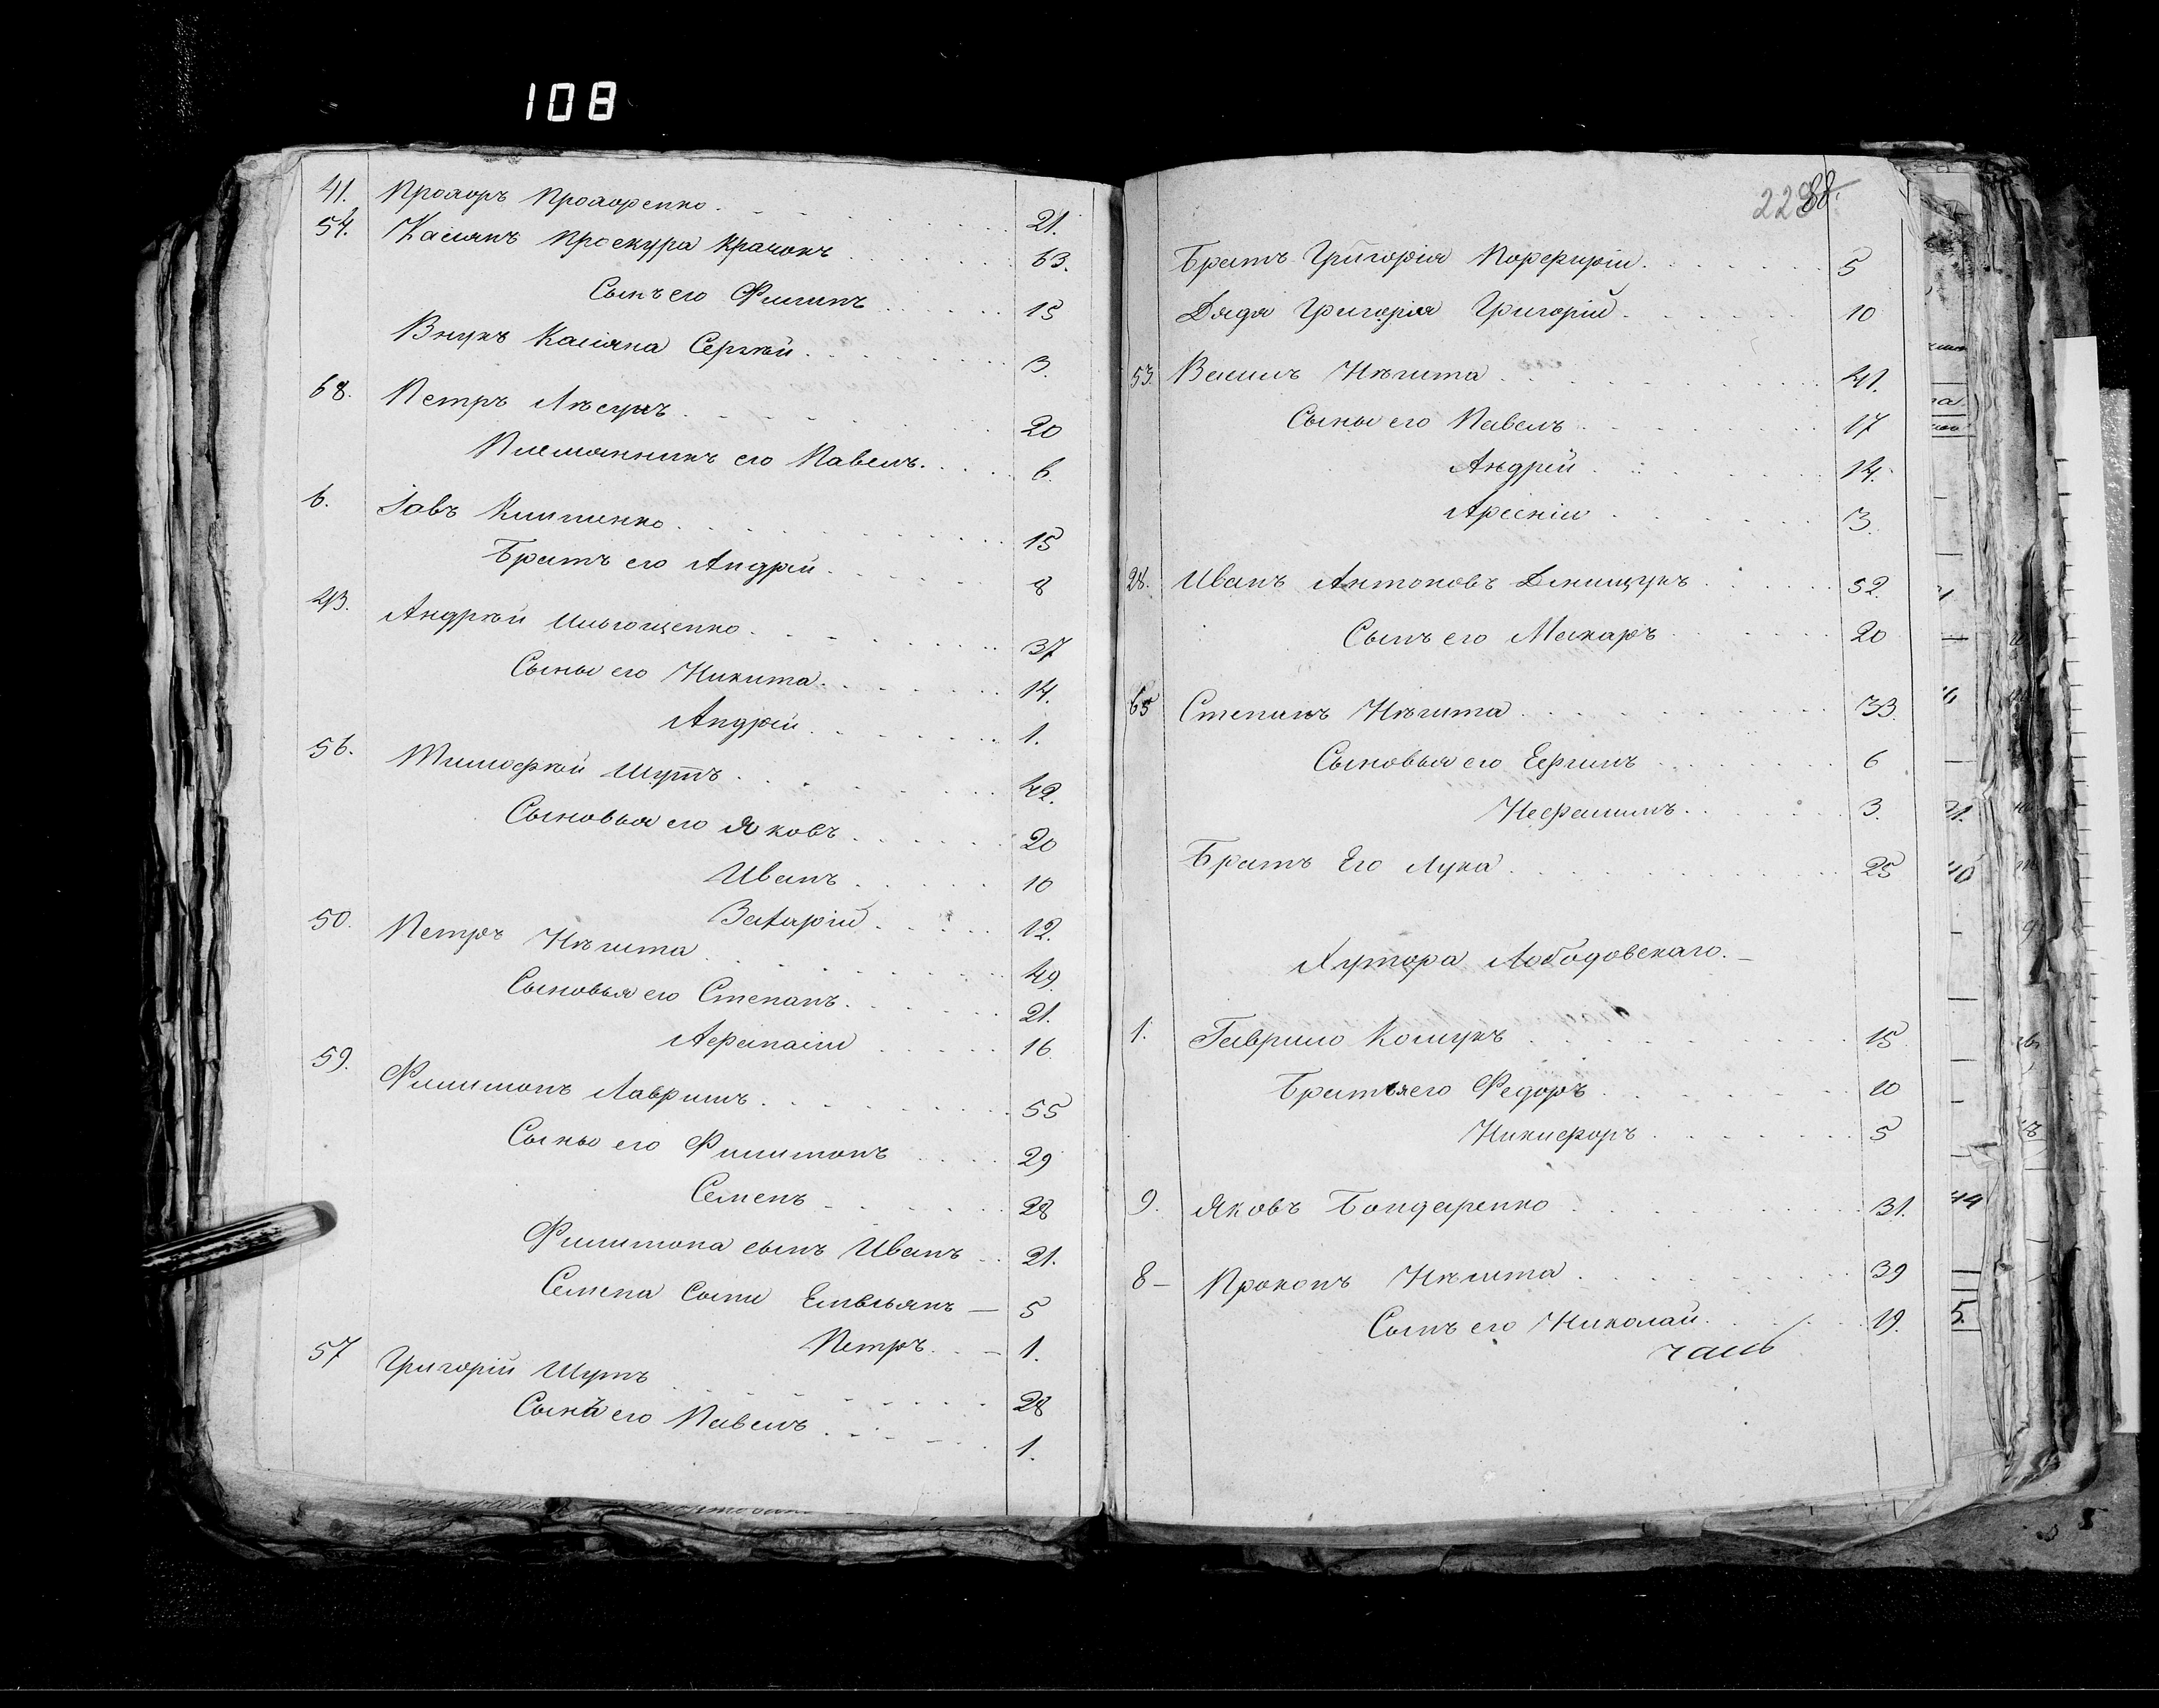 108
41. Прохоръ Прохоренко 21.
54. Касіянъ Проскура Крачокъ 63.
Сынъ его Филипъ 15
Внукъ Касіяна Сергѣй 3.
68. Петръ Лѣсунъ 20
Племянникъ его Павелъ. 6.
6. Іовъ Клименко 15
Братъ его Андрей 8
43. Андрѣй Ильющенко 37
Сыны его Никита 14.
Андрей 1.
56. Тимофѣй Шутъ 42.
Сыновья его Яковъ 20
Иванъ 10
Захарій 12.
50. Петръ Нѣгита 49.
Сыновья его Степанъ 21.
Афанасій 16.
59. Филимонъ Лавришъ 55
Сыны его Филимонъ 29
Семенъ 28
Филимона сынъ Иванъ 21.
Семена сыны Емельянъ — 5
Петръ 1.
57 Григорій Шутъ 28
Сынъ его Павелъ 1.
228
Братъ Григорія Порфирій 5
Дядя Григорія Григорій 10
53. Василь Нѣгита 41.
Сыны его Павелъ 17
Андрей 14.
Арсеній 3.
28. Иванъ Антоновъ Денищукъ 52.
Сынъ его Макаръ 20
65 Степанъ Нѣгита 33.
Сыновья его Ефимъ 6
3.
Братъ Его Лука 25
Хутора Лободовскаго.
1. Гаврило Кошукъ 15
Братья его Федоръ 10
Никифоръ 5
9. Яковъ Бондаренко 31.
8 — Прокопъ Нѣгита 39
Сынъ его Николай 19.